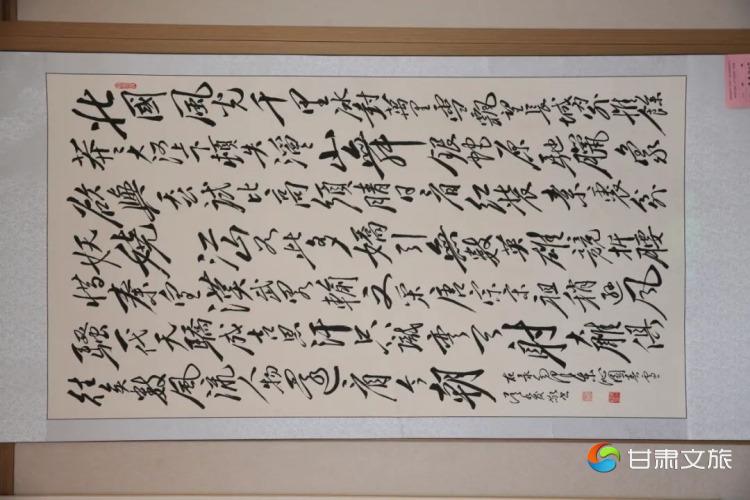 北國風光千里冰封萬里雪飄望長城內外惟餘
莽莽大河上下頓失滔滔山舞銀蛇原馳臘象
欲與天公試比高須晴日看紅裝素裹分外
妖嬈江山如此多嬌引無數英雄競折腰
惜秦皇漢武略輸文采唐宗宋祖稍遜風
騷一代天驕成吉思汗只識彎弓射大雕俱
往矣數風流人物還看今朝
毛澤東沁園春雪
甘肃文旅